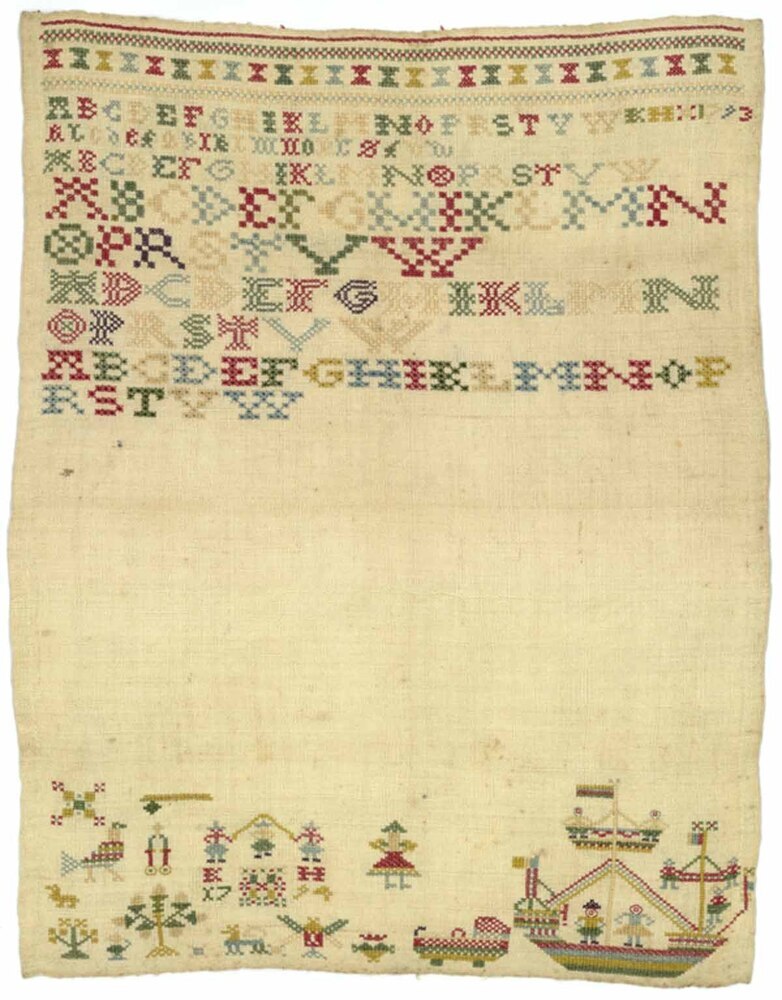 ABCDEFGHIKLMNOPRSTVW KH
ABCDEFGHIKLMNOPRSTVW
ABCDEFGHIKLMN
OPRSTVW
ABCDEFGHIKLMN
OPRSTVW
ABCDEFGHIKLMNOP
RSTVW
K H
17